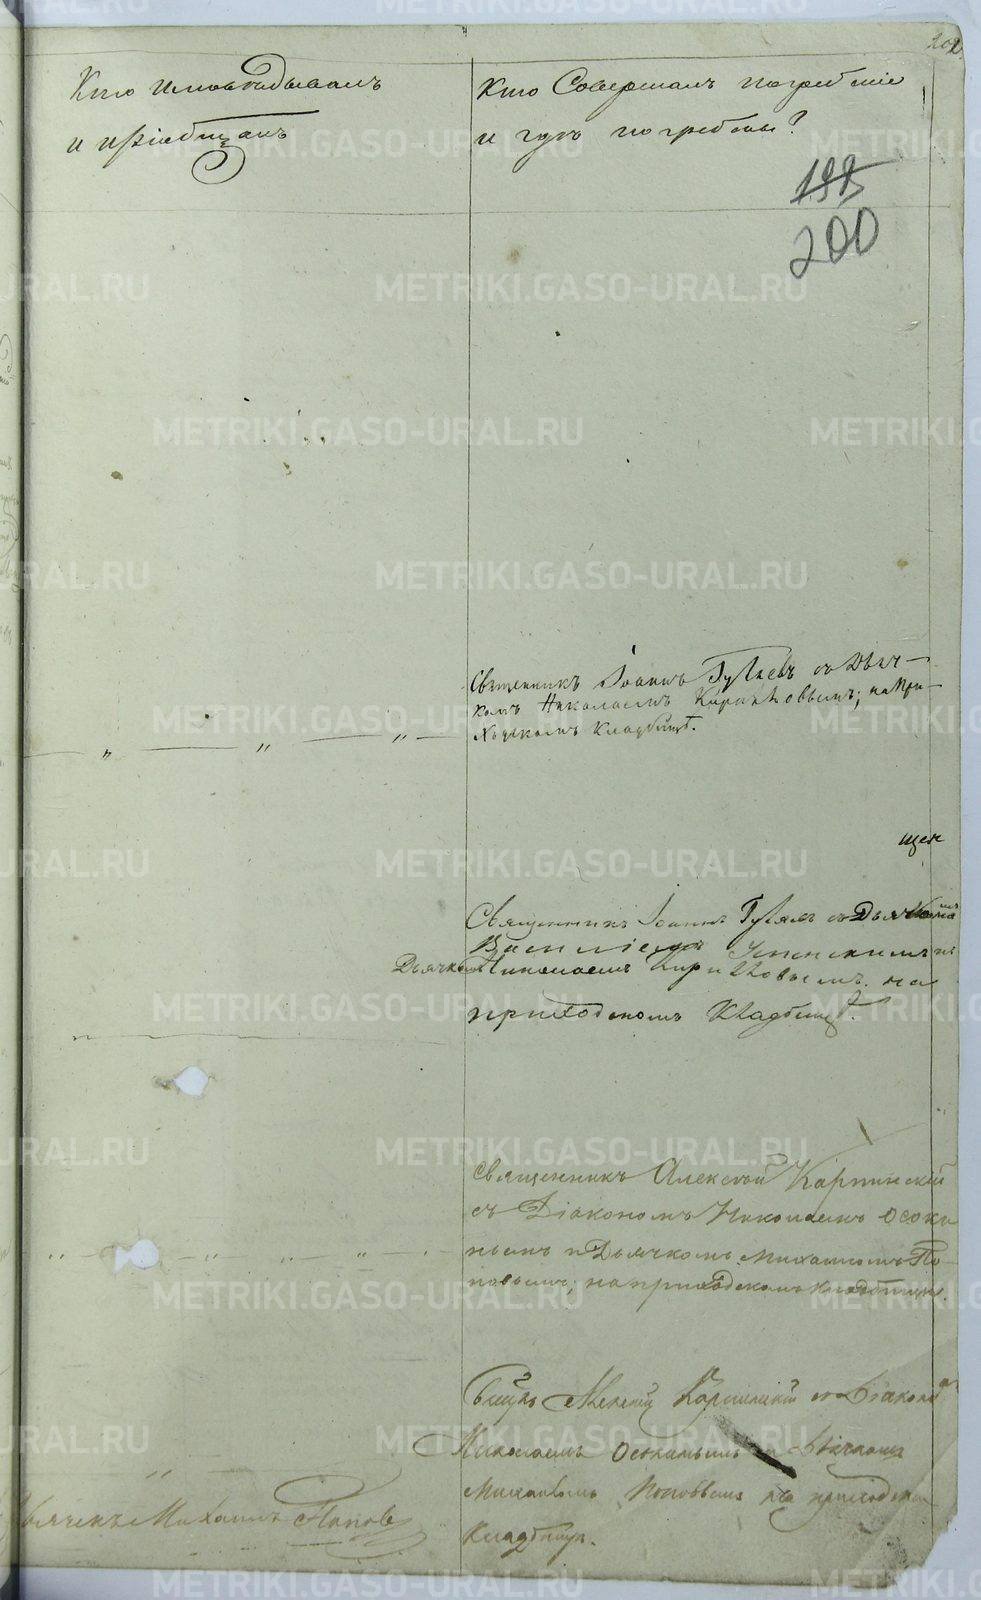 202
Кто исповѣдывалъ
и пріобщалъ
Кто Совершалъ погребеніе
и гдѣ погребены?
199
200
Священникъ Іоаннъ Гуляевъ съ Дьяч-
комъ Николаемъ Кириловымъ; на При-
ходскомъ кладбищѣ.
Священникъ Іоаннъ съ Дьячкомъ
Успенскимъ и
Дьячкомъ Николаемъ Кириловымъ на
приходскомъ Кладбищѣ.
Священникъ Алексѣй Карпинскій
съ Діакономъ Николаемъ Осоки
нымъ и Дьячкомъ Михаиломъ По-
повымъ; на приходскомъ кладбищѣ.
Алексѣй Карпинскій съ Діакономъ
Николаемъ Осокинымъ и Дьячкомъ
Михаиломъ Поповымъ на приходском
Кладбищѣ.
Дьячекъ Михаилъ Поповъ
METRIKI.GASO-URAL.RU